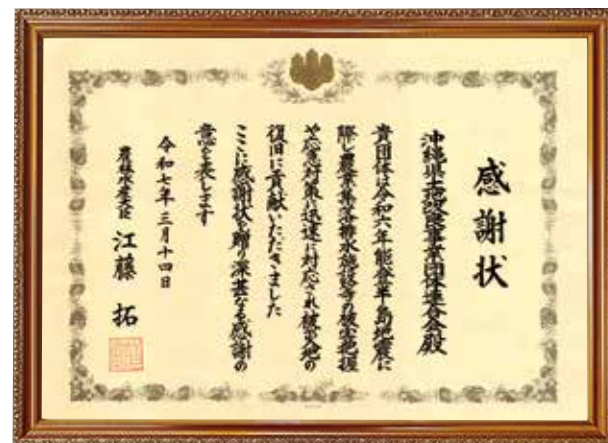 感謝状
沖縄県土地改良事業団体連合会殿
貴団体は令和六年能登半島地震に
際し農業集落排水施設等の被害把握
や応急対策に迅速に対応され被災地の
復旧に貢献いただきました
ここに感謝状を贈り深甚なる感謝の
意を表します
令和七年三月十四日
農林水産大臣 江藤 拓